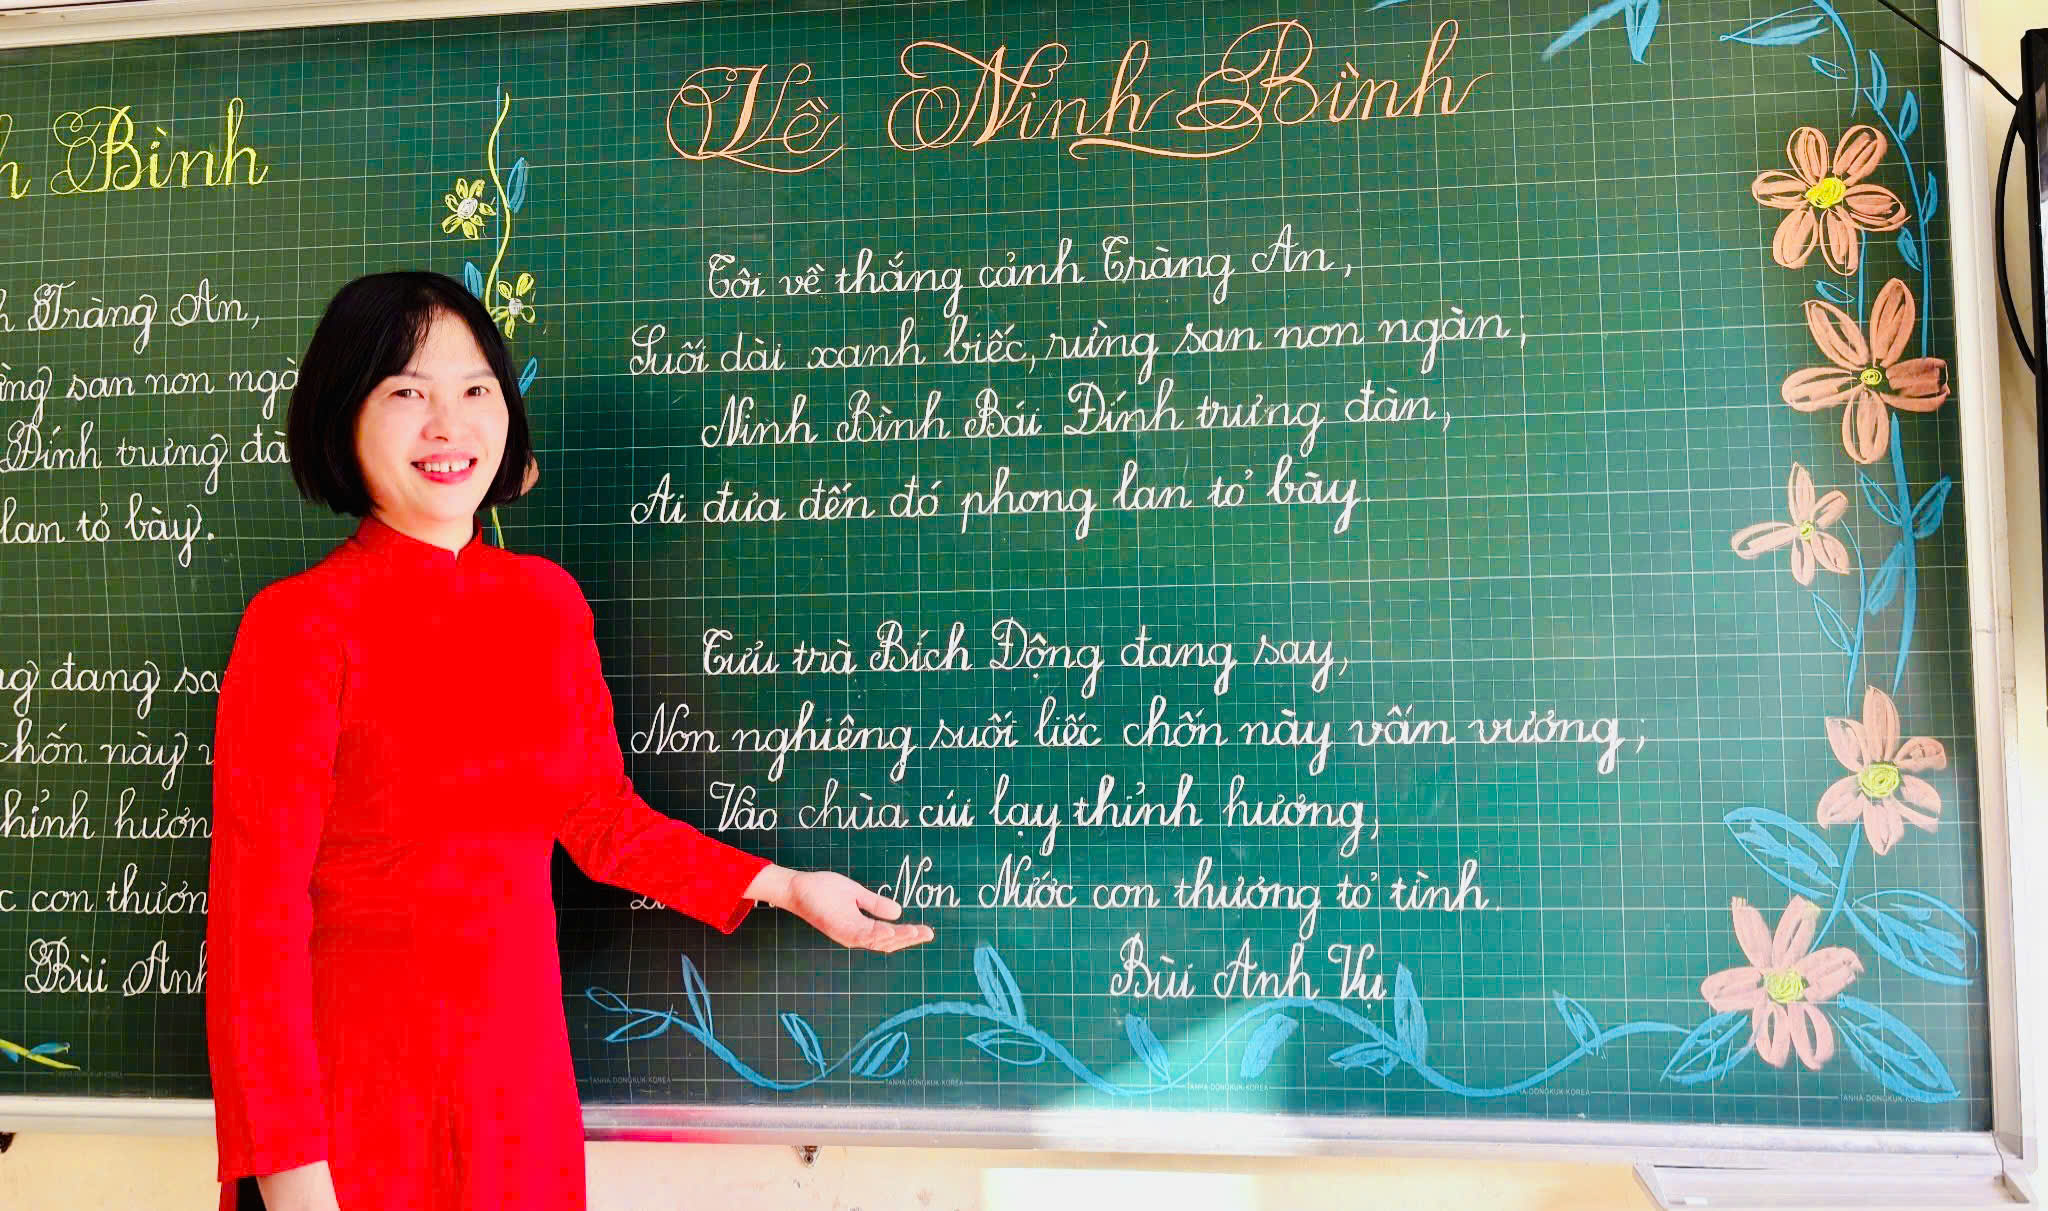 Bình
Tràng An,
san non
Đính trưng
lan tỏ bày.
đang
chốn này
thỉnh
con
Bùi Anh
Về Ninh Bình
Tôi về thắng cảnh Tràng An,
Suối dài xanh biếc, rừng san non ngàn;
Ninh Bình Bái Đính trưng đàn,
Ai đưa đến đó phong lan tỏ bày.
Tửu trà Bích Động đang say,
Non nghiêng suối liếc chốn này vấn vương;
Vào chùa cúi lạy thỉnh hương,
Non Nước con thương tỏ tình.
Bùi Anh Vụ
TANHA-DONGKUK-KOREA
TANHA-DONGKUK-KOREA
TANHA-DONGKUK-KOREA
TANHA-DONGKUK-KOREA
TANHA-DONGKUK-KOREA